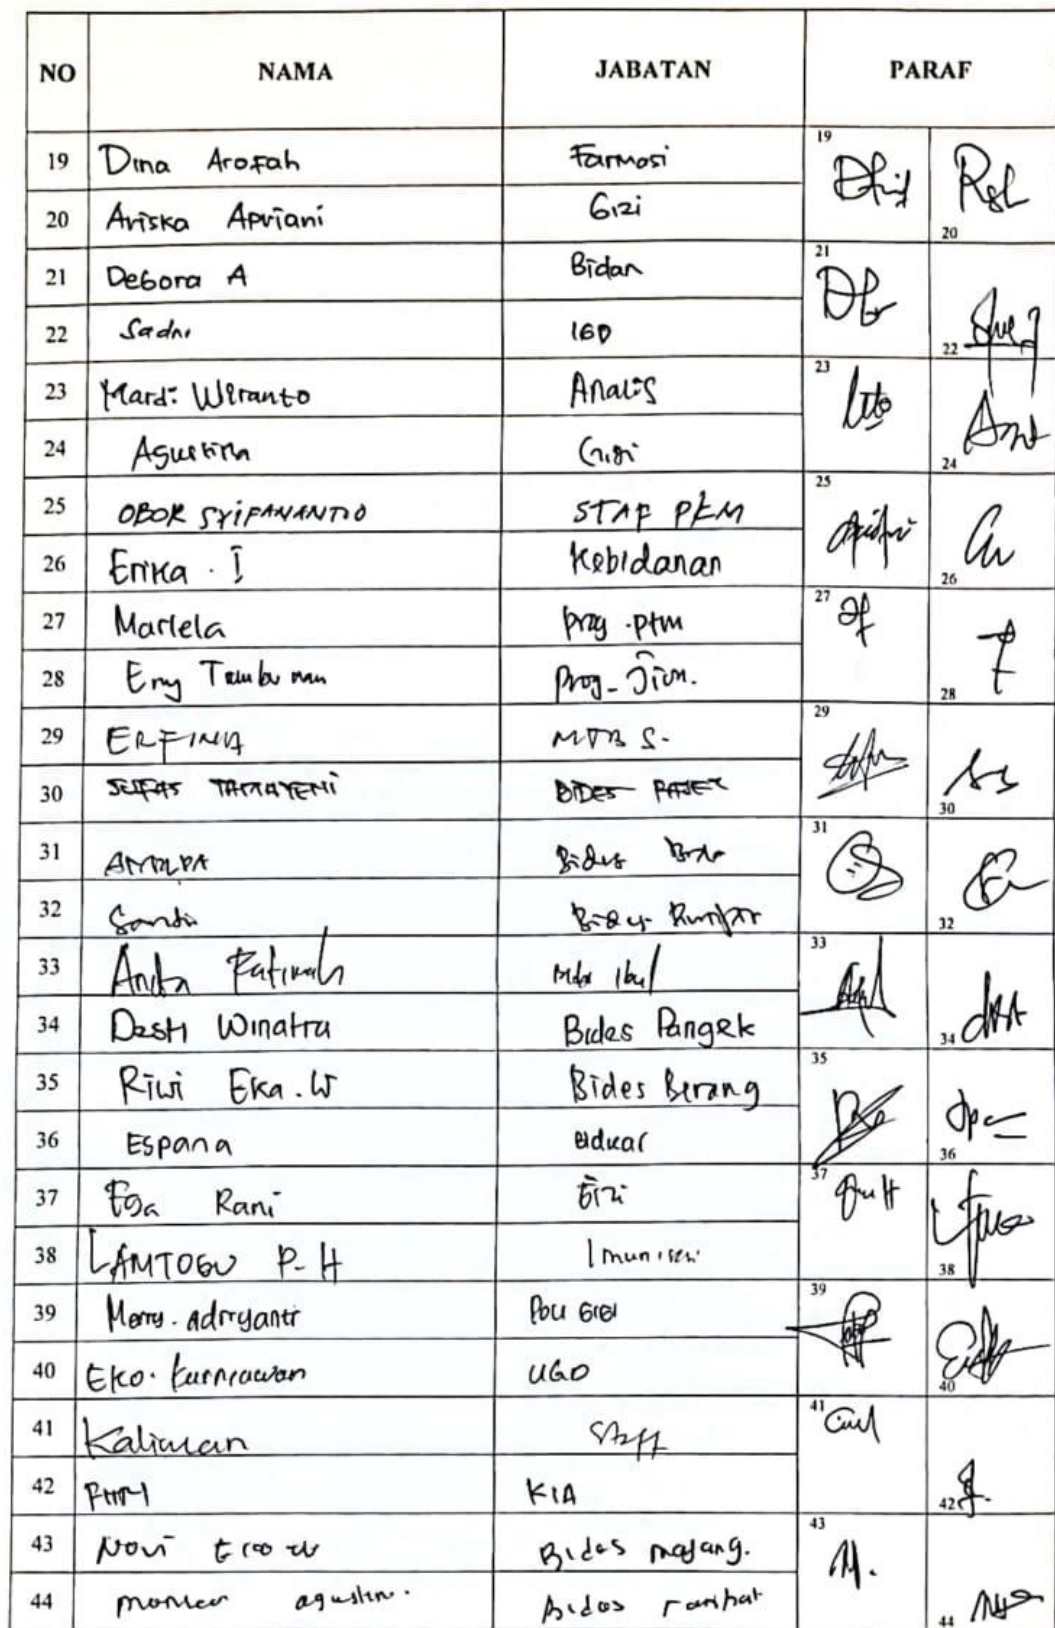 NO NAMA JABATAN PARAF
19 Dina Arofah Farmasi 19
20 Ariska Apriani Gizi 20
21 Debora A Bidan 21
22 Sadri IGD 22
23 Mardi Wiranto Analis 23
24 Agustina Gizi 24
25 OBOR SYIFANANTO STAF PKM 25
26 Erika . I Kebidanan 26
27 Marlela prog .ptm 27
28 Eny Tambunan prog_ 28
29 ERFINA MTBS. 29
30 BIDES 30
31 Bides 31
32 Santi 32
33 Anita Fatimah 33
34 Desti Winatra Bides Pangek 34
35 Riwi Eka . W Bides Berang 35
36 Espana 36
37 Ega Rani Gizi 37
38 LAMTOGU P-H Imunisasi 38
39 Merry . Adriyanti Poli GIGI 39
40 Eko . Kurniawan UGD 40
41 Kaliman Staff 41
42 KIA 42
43 Novi Bides mayang. 43
44 agustin. Bides 44